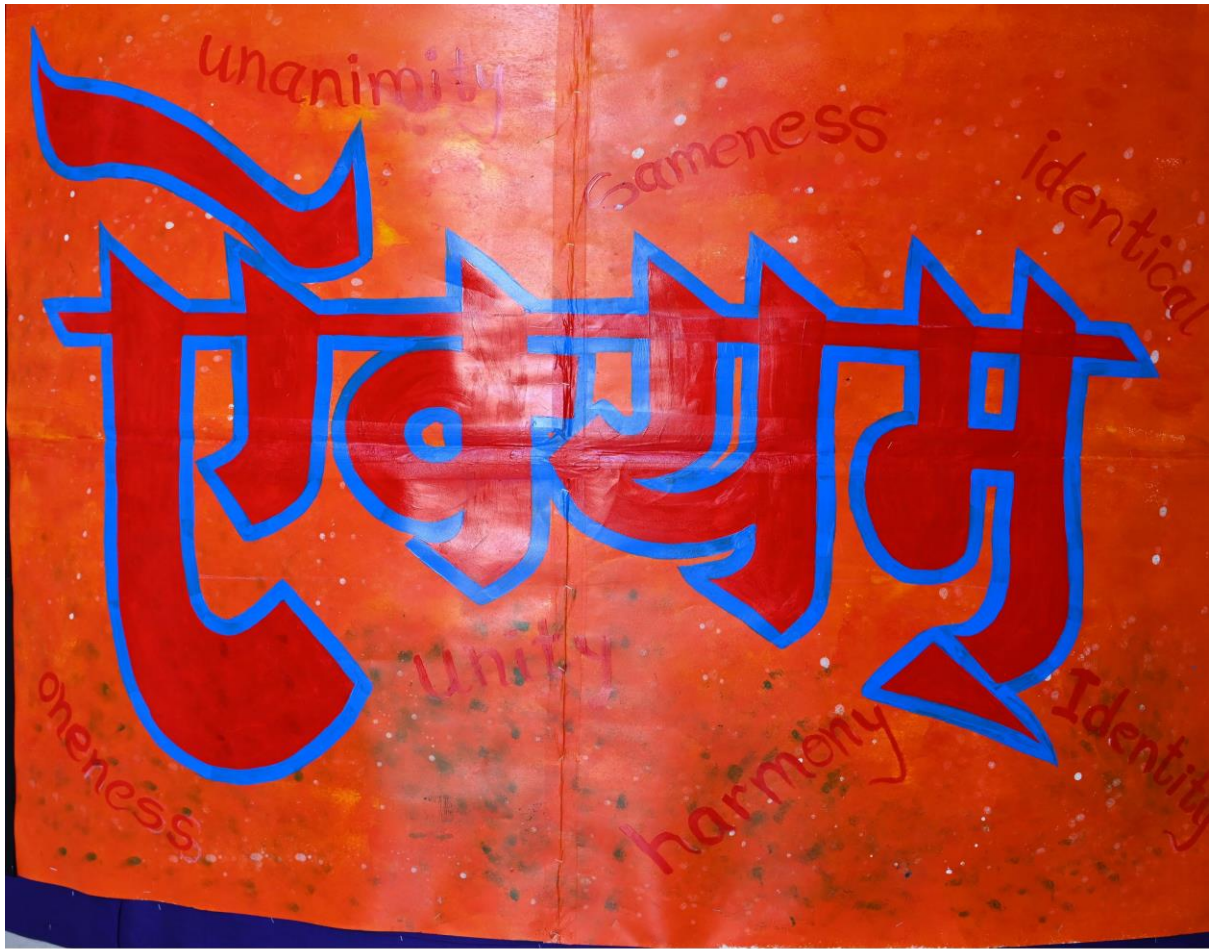 unanimity
Sameness
identical
ऐक्यम्
unity
oneness
harmony
Identity